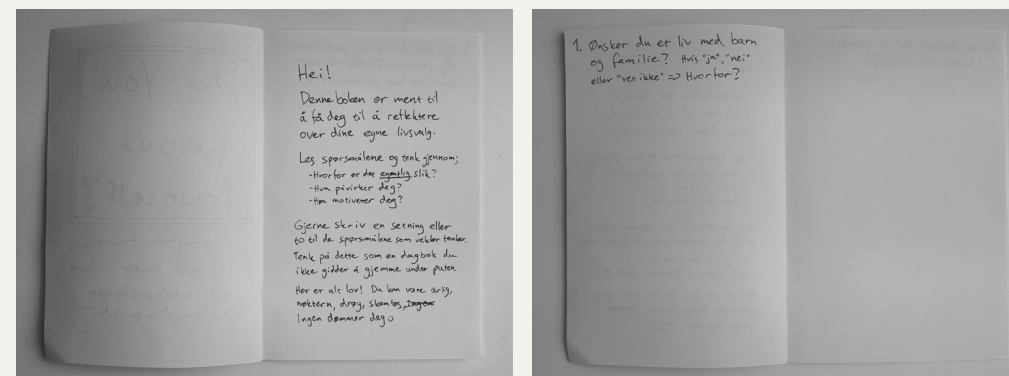 Hei!
Denne boken er ment til
å få deg til å reflektere
over dine egne livsvalg.
Les spørsmålene og tenk gjennom:
-Hvorfor er det egentlig slik?
-Hva påvirker deg?
-Hva motiverer deg?
Gjerne skriv en setning eller
to til de spørsmålene som vekker tanker.
Tenk på dette som en dagbok du
ikke gidder å gjemme under puten.
Her er alt lov! Du kan være ærlig,
nøktern, drøy, skamløs, Ingen
Ingen dømmer deg
1. Ønsker du et liv med barn
og familie? Hvis "ja", "nei"
eller "vet ikke" => Hvorfor?
Do You
Know
Yourself?